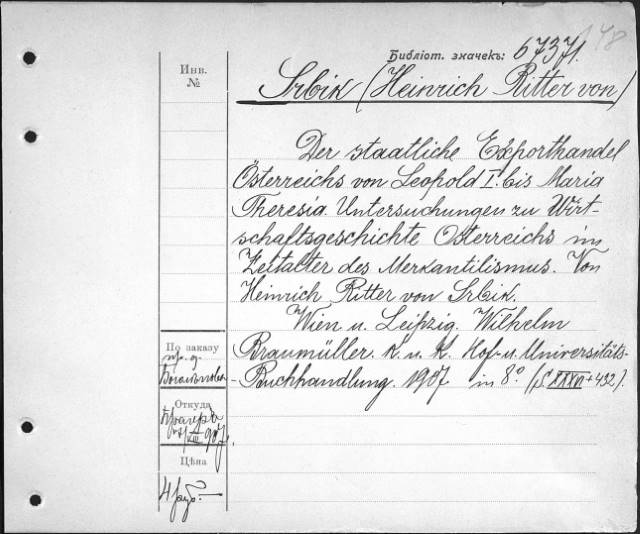 48
Библіот. значекъ: 67371.
Инв. №
Srbik (Heinrich Ritter von)
Der staatliche Exporthandel
Österreichs von Leopold I. bis Maria
Theresia. Untersuchungen zu Wirt-
schaftsgeschichte Österreichs im
Zeitalter des Merkantilismus. Von
Heinrich Ritter von Srbik.
Wien u. Leipzig. Wilhelm
Braumüller. K. u. K. Hof- u. Universitäts-
-Buchhandlung. 1907 in 8° (S. XXXVI+432).
По заказу
пр. д.
Откуда
XII 907.
Цѣна
4 руб. —